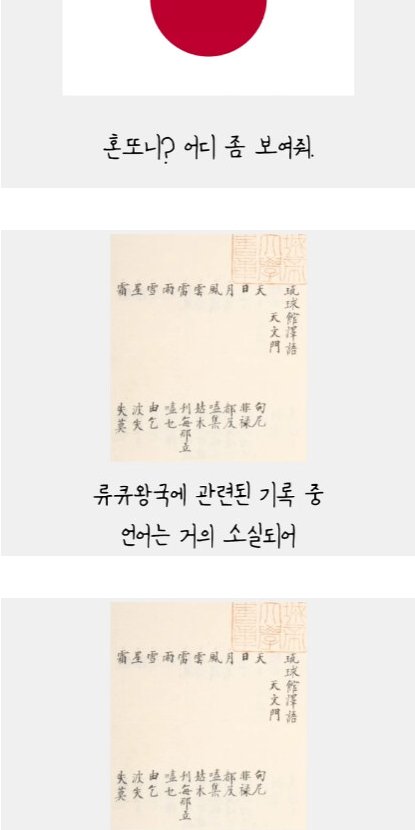 혼또니? 어디 좀 보여줘.
琉球館譯語
天文門
天 甸尼
日 非祿
月 都及
風 嗑集
雲 姑木
雷 刊每那立
雨 嗑乜
雪 由乞
星 波失
霜 失莫
류큐왕국에 관련된 기록 중
언어는 거의 소실되어
琉球館譯語
天文門
天 甸尼
日 非祿
月 都及
風 嗑集
雲 姑木
雷 刊每那立
雨 嗑乜
雪 由乞
星 波失
霜 失莫